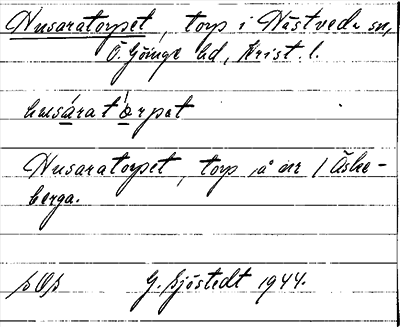 Husaratorpet, torp i Hästveda sn,
Ö. Göinge hd, Krist. l.
husárat òrpet
Husaratorpet, torp å nr 1 Äske-
berga.
sOs G. Sjöstedt 1944.